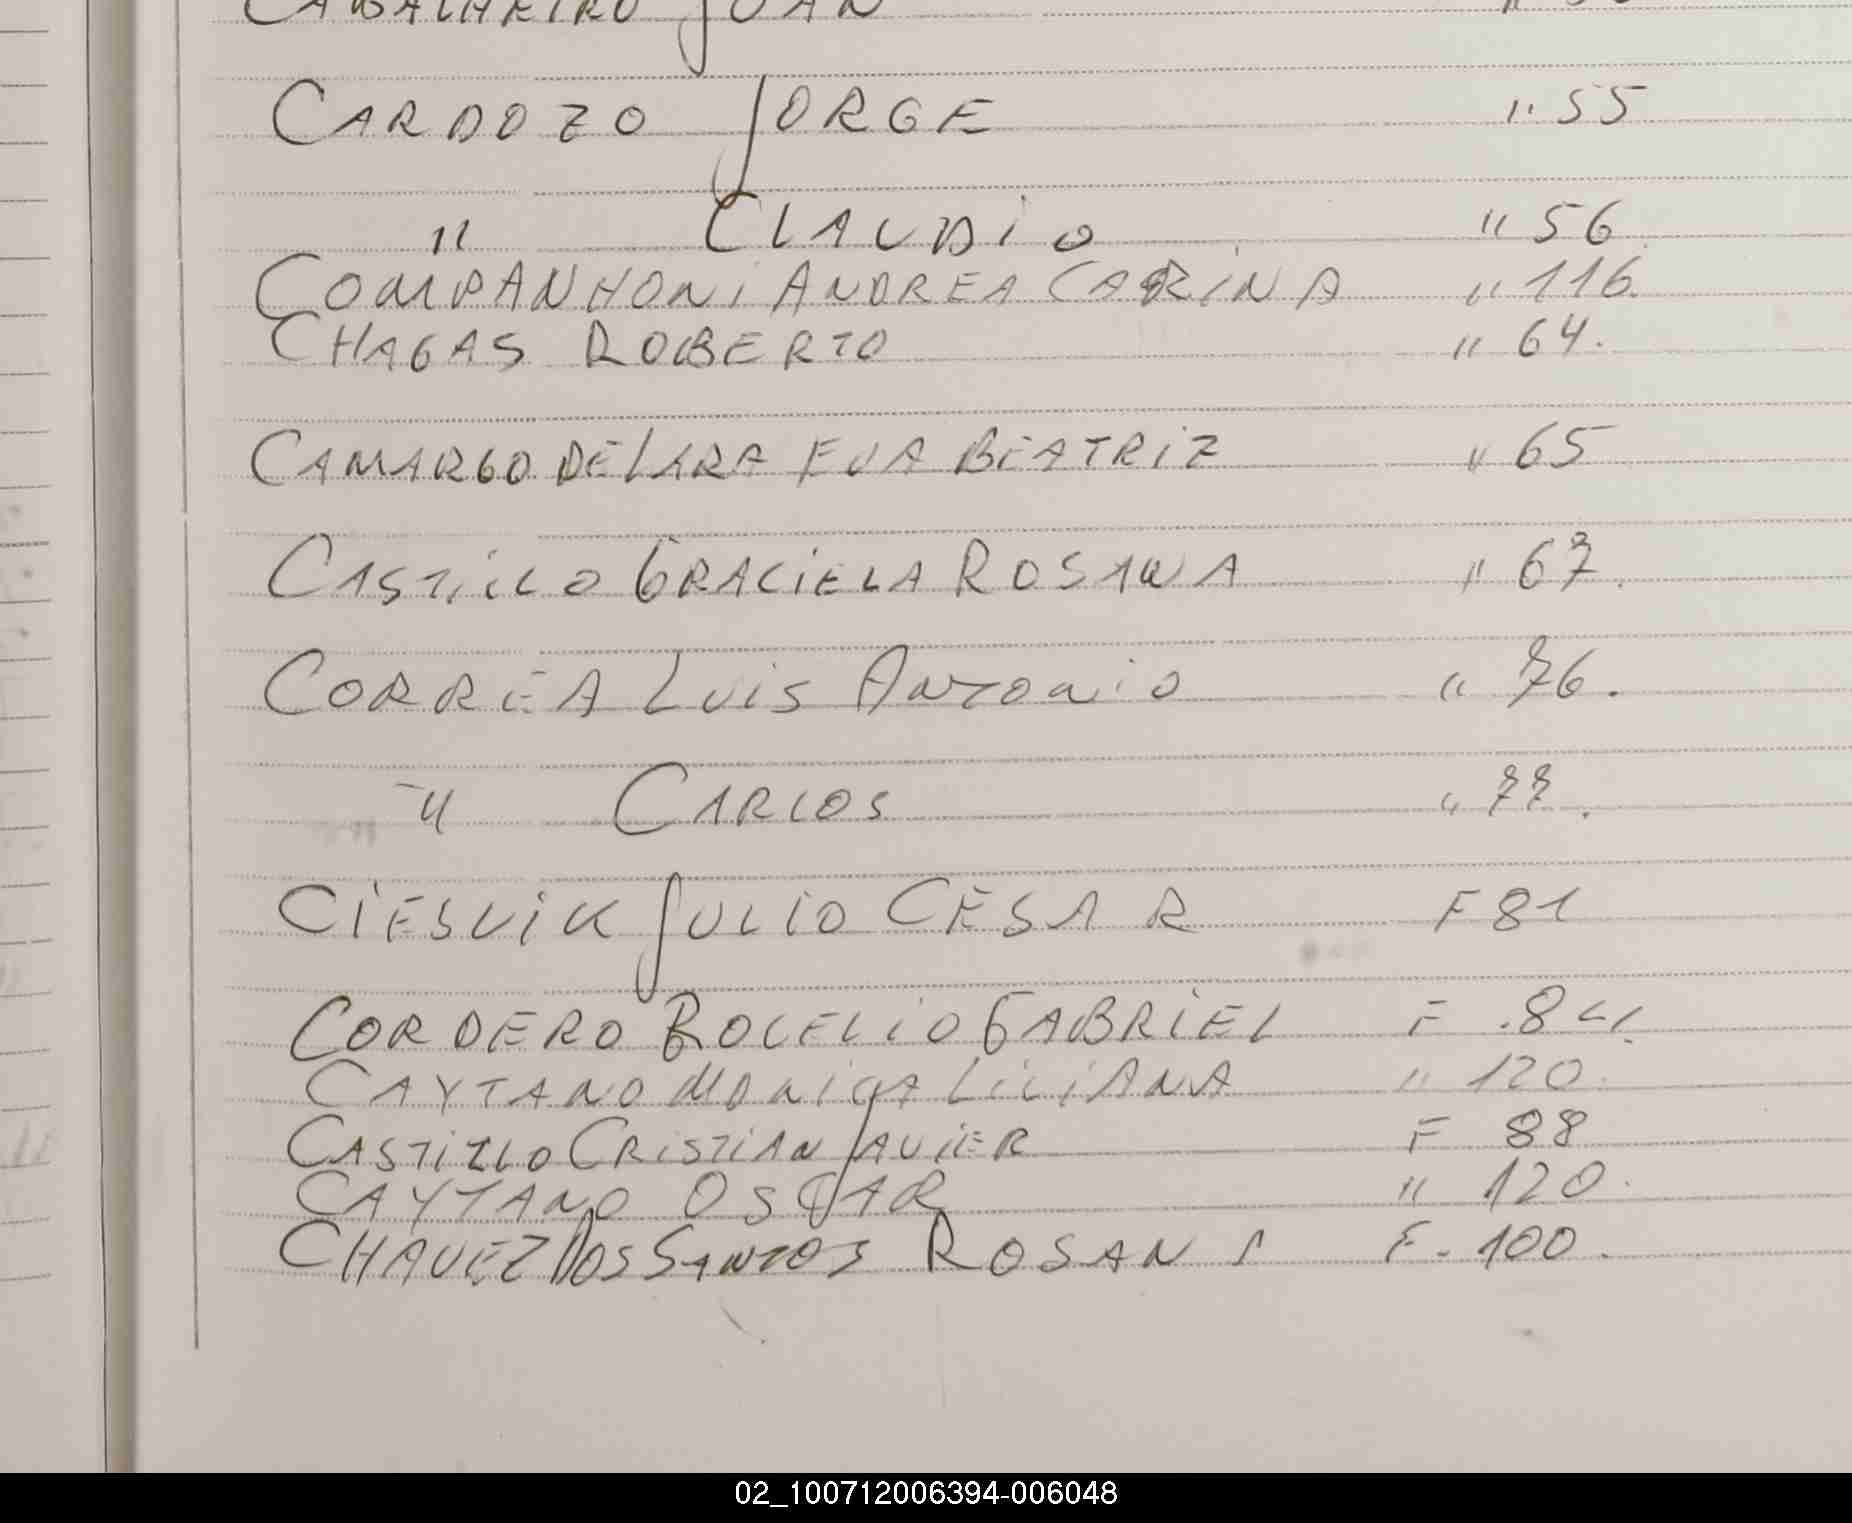 CABALHEIRO JUAN "
CARDOZO JORGE " 55
" CLAUDIO " 56
COMPANHONI ANDREA CARINA " 116.
CHAGAS ROBERTO " 64.
CAMARGO DE LARA EVA BEATRIZ " 65
CASTILLO GRACIELA ROSANA " 67.
CORREA LUIS ANTONIO " 76.
" CARLOS " 77.
CIESLVIK JULIO CESAR F 81
CORDERO ROGELIO GABRIEL F. 84.
CAYTANO MONICA LILIANA " 120.
CASTILLO CRISTIAN JAVIER F 88
CAYTANO OSCAR " 120.
CHAVEZ DOS SANTOS ROSANA F. 100.
02_100712006394-006048